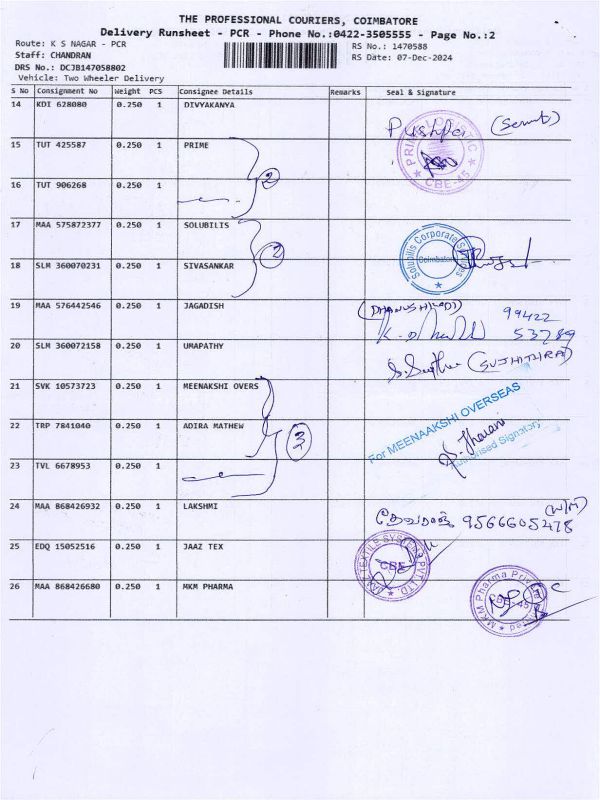 THE PROFESSIONAL COURIERS, COIMBATORE
Delivery Runsheet - PCR - Phone No.:0422-3505555 - Page No.:2
Route: K S NAGAR - PCR
RS No.: 1470588
Staff: CHANDRAN
RS Date: 07-Dec-2024
DRS No.: DCJB147058802
Vehicle: Two Wheeler Delivery
S No Consignment No Weight PCS Consignee Details Remarks Seal & Signature
14 KDI 628080 0.250 1 DIVYAKANYA
Pushpa
15 TUT 425587 0.250 1 PRIME
CBE-45
16 TUT 906268 0.250 1
2
17 MAA 575872377 0.250 1 SOLUBILIS
2
Solubilis Corporate Services
Coimbatore
18 SLM 360070231 0.250 1 SIVASANKAR
19 MAA 576442546 0.250 1 JAGADISH
99422
53789
20 SLM 360072158 0.250 1 UMAPATHY
(SUJHITHRA)
21 SVK 10573723 0.250 1 MEENAKSHI OVERS
For MEENAAKSHI OVERSEAS
22 TRP 7841040 0.250 1 ADIRA MATHEW
3
Authorised Signatory
23 TVL 6678953 0.250 1
24 MAA 868426932 0.250 1 LAKSHMI
தேவராஜ் 9566605478
25 EDQ 15052516 0.250 1 JAAZ TEX
CBE
26 MAA 868426680 0.250 1 MKM PHARMA
MKM Pharma Private Limited
CBE-45